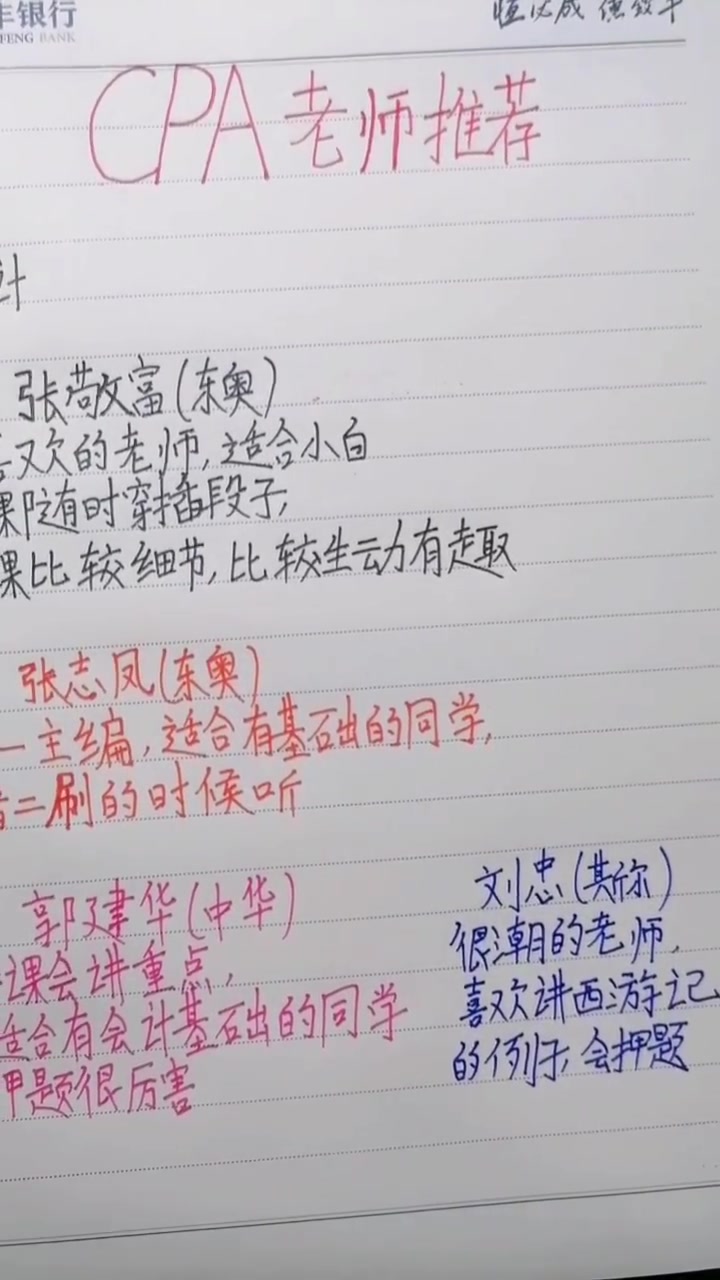 丰银行
FENG BANK
CPA老师推荐
计
张敬富(东奥)
喜欢的老师,适合小白
课随时穿插段子,
课比较细节,比较生动有趣
张志凤(东奥)
一主编,适合有基础的同学,
二刷的时候听
郭建华(中华)
课会讲重点,
适合有会计基础的同学
押题很厉害
刘忠(其你)
很潮的老师,
喜欢讲西游记
的例子,会押题